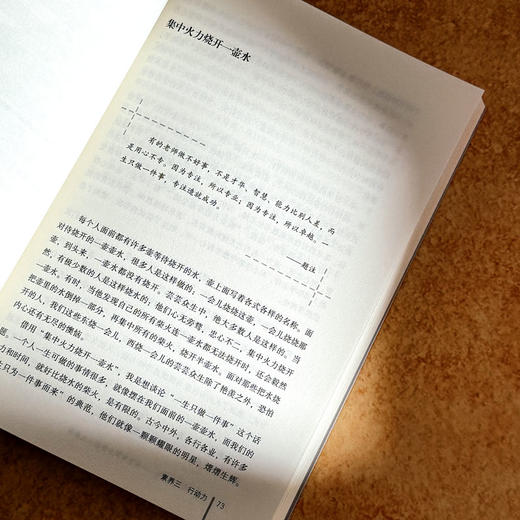 集中火力烧开一壶水
有的老师做不好事，不是才华、智慧、能力比别人差，而
是用心不专。因为专注，所以专业；因为专注，所以卓越。一
生只做一件事，专注造就成功。
——题注
每个人面前都有许多壶等待烧开的水，壶上面写着各式各样的名称。面
对待烧开的一壶壶水，很多人是这样做的：一会儿烧烧这壶，一会儿烧烧那
壶，到头来，一壶水都没有烧开。芸芸众生中，绝大多数人是这样的。当
然，有极少数的人是这样烧水的：他们心无旁骛，忠心不二，集中火力烧开
一壶水。有时，当他发现自己的所有柴火连一壶水都无法烧开时，还会毅然
把壶里的水倒掉一部分，再集中所有的柴火，烧开半壶水。面对那些把水烧
开的人，我们这些东烧一会儿，西烧一会儿的芸芸众生除了艳羡之外，恐怕
内心还有无尽的懊恼。
借用“集中火力烧开一壶水”，我是想谈论“一生只做一件事”这个话
题。一个人一生可做的事情很多，就像摆在我们面前的一壶壶水，而我们的
力和时间，就好比烧水的柴火，是有限的。古今中外，各行各业，有许多
生只为一件事而来”的典范，他们就像一颗颗耀眼的明星，熠熠生辉。
素养三 行动力 73